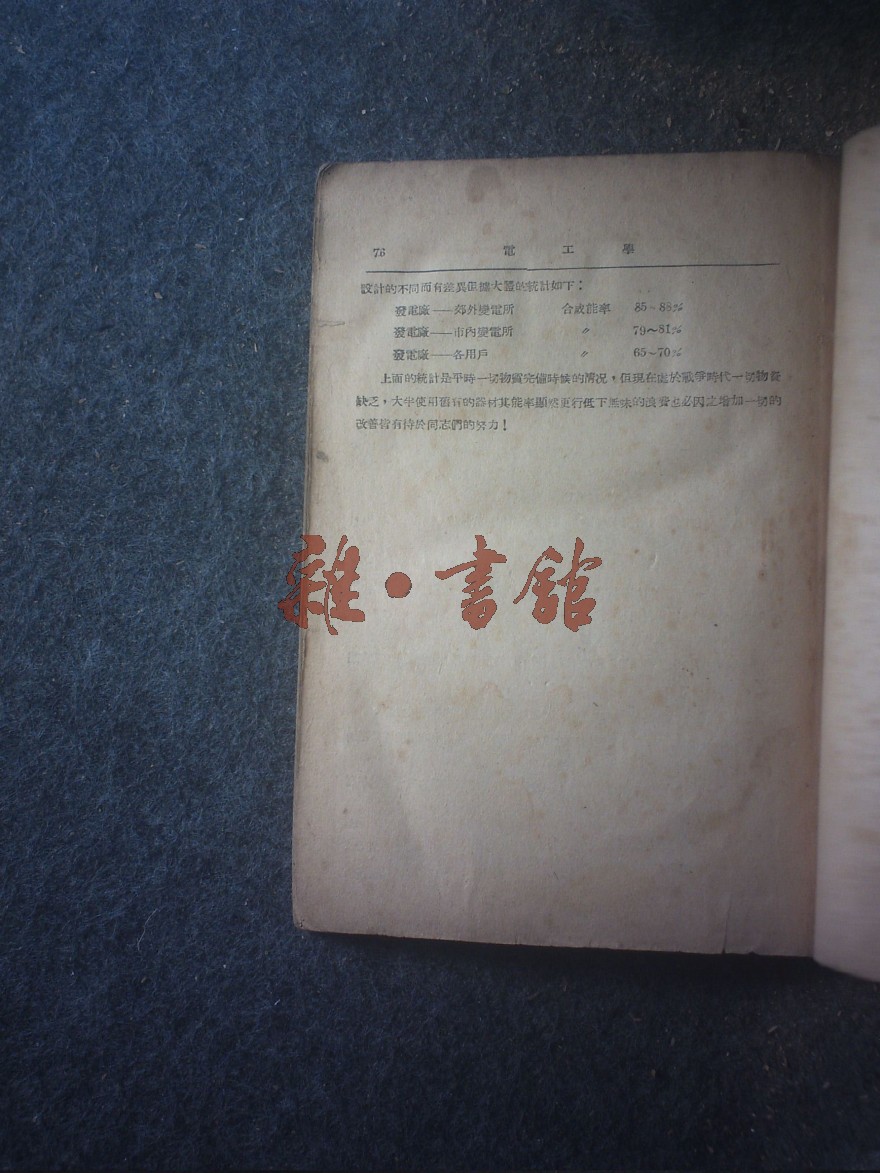 76 電工學
設計的不同而有差異但據大體的統計如下：
發電廠——郊外變電所 合成能率 85~88%
發電廠——市內變電所 〃 79~81%
發電廠——各用戶 〃 65~70%
上面的統計是平時一切物質完備時候的情況，但現在處於戰爭時代一切物資
缺乏，大半使用舊有的器材其能率顯然更行低下無味的浪費也必因之增加一切的
改善皆有待於同志們的努力！
雜·書館